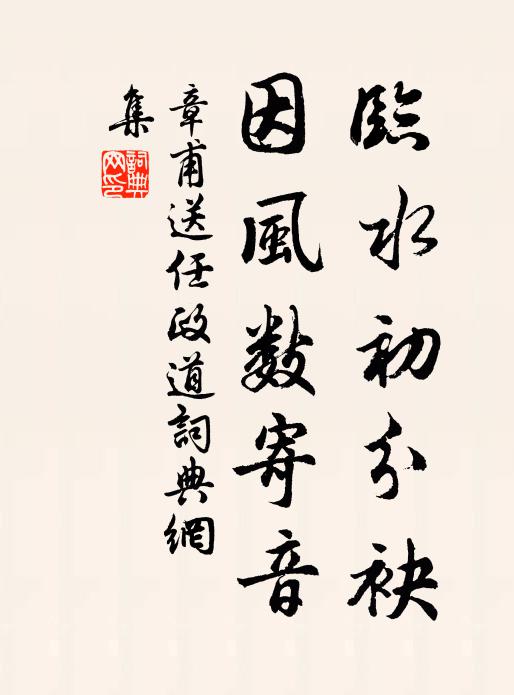 臨水初分袂
因風數寄音
章甫送任政道詞典網
集
詞典
网印